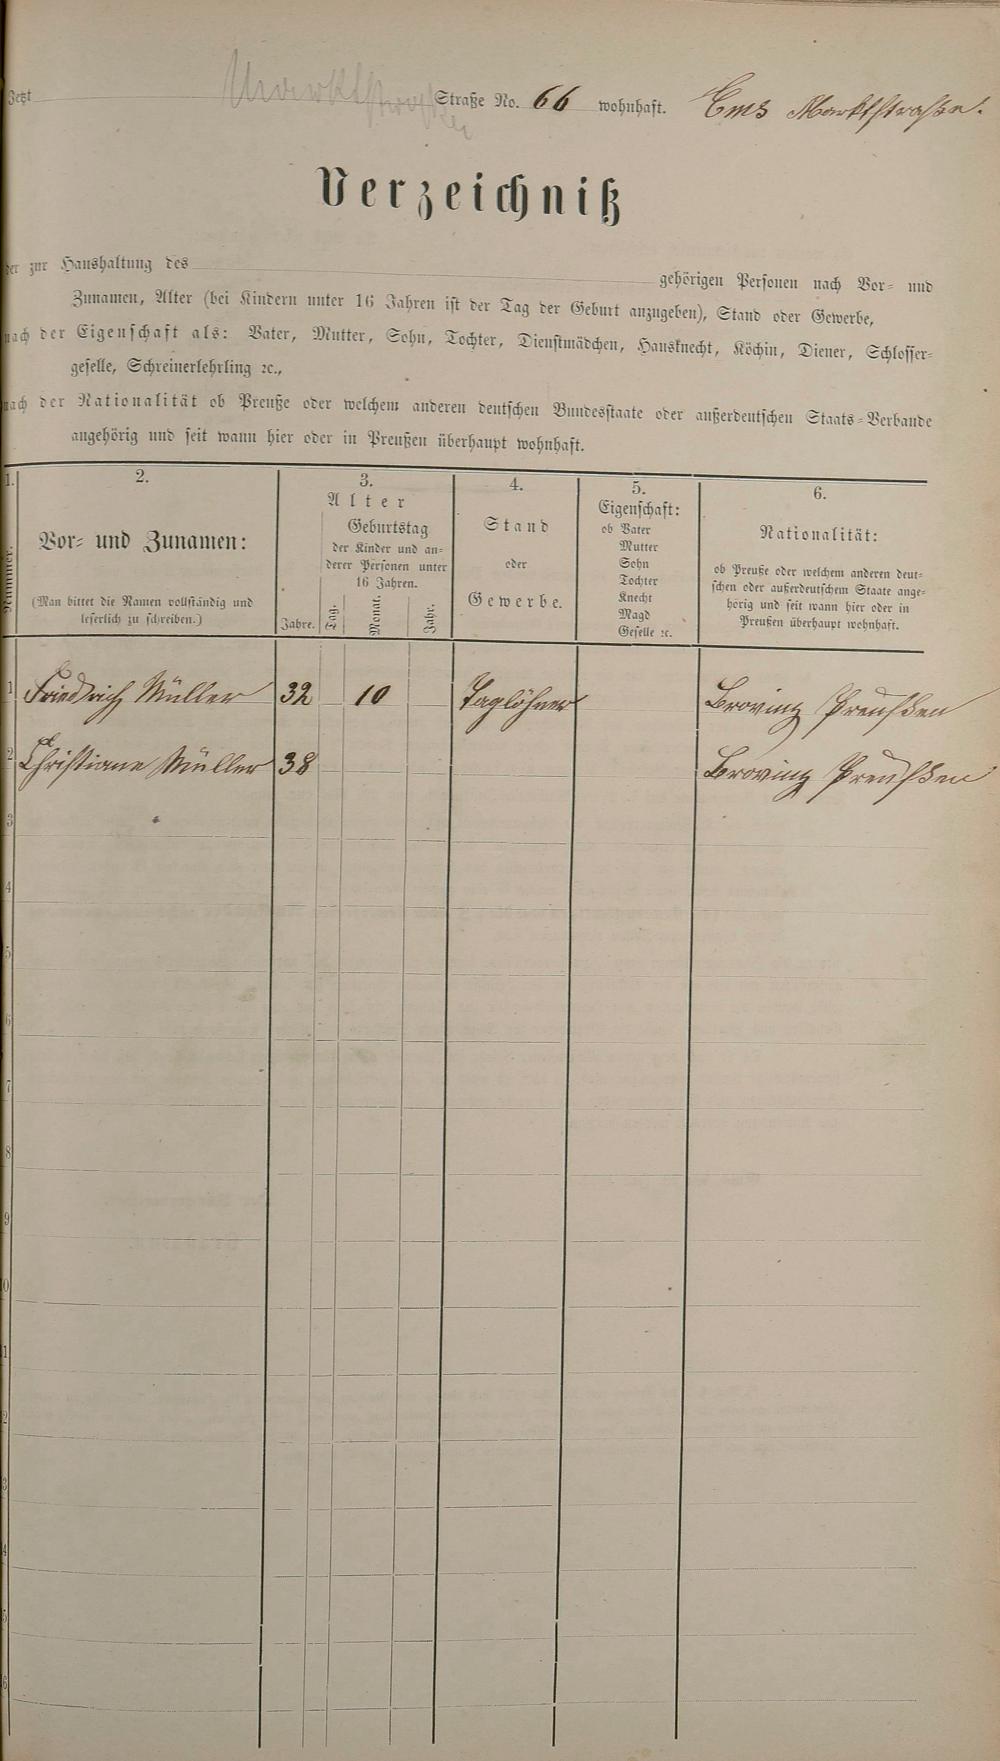 Jetzt Marktstraße Straße No. 66 wohnhaft. Ems Marktstraße.
Verzeichniß
der zur Haushaltung des gehörigen Personen nach Vor- und
Zunamen, Alter (bei Kindern unter 16 Jahren ist der Tag der Geburt anzugeben), Stand oder Gewerbe,
nach der Eigenschaft als: Vater, Mutter, Sohn, Tochter, Dienstmädchen, Hausknecht, Köchin, Diener, Schlosser-
geselle, Schreinerlehrling ꝛc.,
nach der Nationalität ob Preuße oder welchem anderen deutschen Bundesstaate oder außerdeutschen Staats-Verbande
angehörig und seit wann hier oder in Preußen überhaupt wohnhaft.
1.
Nummer.
2.
Vor- und Zunamen:
(Man bittet die Namen vollständig und
leserlich zu schreiben.)
3.
Alter
Jahre.
Geburtstag
der Kinder und an-
derer Personen unter
16 Jahren.
Tag.
Monat.
Jahr.
4.
Stand
oder
Gewerbe.
5.
Eigenschaft:
ob Vater
Mutter
Sohn
Tochter
Knecht
Magd
Geselle ꝛc.
6.
Nationalität:
ob Preuße oder welchem anderen deut-
schen oder außerdeutschem Staate ange-
hörig und seit wann hier oder in
Preußen überhaupt wohnhaft.
1 Friedrich Müller 32 10 Taglöhner Brovinz Preußen
2 Christiane Müller 38 Brovinz Preußen
3
4
5
6
7
8
9
0
1
2
3
4
5
6